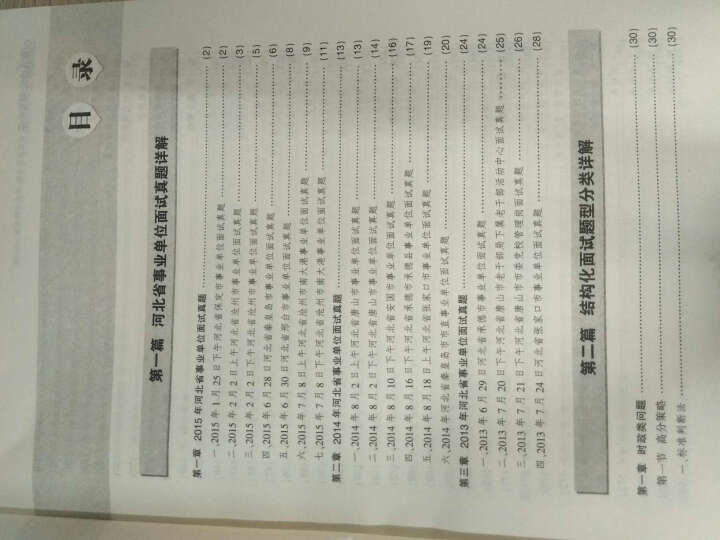 目 录
第一篇 河北省事业单位面试真题详解
第一章 2015年河北省事业单位面试真题 (2)
一、2015年1月25日下午河北省保定市事业单位面试真题 (2)
二、2015年2月2日上午河北省沧州市事业单位面试真题 (3)
三、2015年2月2日下午河北省沧州市事业单位面试真题 (5)
四、2015年6月28日河北省秦皇岛市事业单位面试真题 (6)
五、2015年6月30日河北省邢台市事业单位面试真题 (8)
六、2015年7月8日上午河北省沧州市南大港事业单位面试真题 (9)
七、2015年7月8日下午河北省沧州市南大港事业单位面试真题 (11)
第二章 2014年河北省事业单位面试真题 (13)
一、2014年8月2日上午河北省唐山市事业单位面试真题 (13)
二、2014年8月2日下午河北省唐山市事业单位面试真题 (14)
三、2014年8月10日下午河北省安国市事业单位面试真题 (16)
四、2014年8月16日下午河北省承德市承德县事业单位面试真题 (17)
五、2014年8月18日上午河北省张家口市事业单位面试真题 (19)
六、2014年河北省秦皇岛市市直事业单位面试真题 (20)
第三章 2013年河北省事业单位面试真题 (24)
一、2013年6月29日河北省承德市事业单位面试真题 (24)
二、2013年7月20日下午河北省唐山市老干部局下属老干部活动中心面试真题 (25)
三、2013年7月21日下午河北省唐山市市委党校管理岗面试真题 (26)
四、2013年7月24日河北省张家口市事业单位面试真题 (28)
第二篇 结构化面试题型分类详解
第一章 时政类问题 (30)
第一节 高分策略 (30)
一、标准判断法 (30)